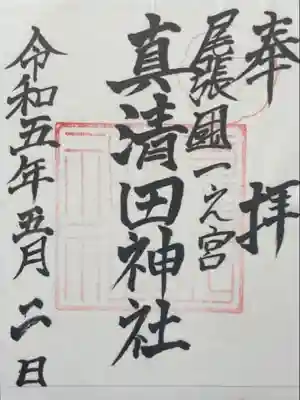 奉拝
尾張國一之宮
真清田神社
令和五年五月六日